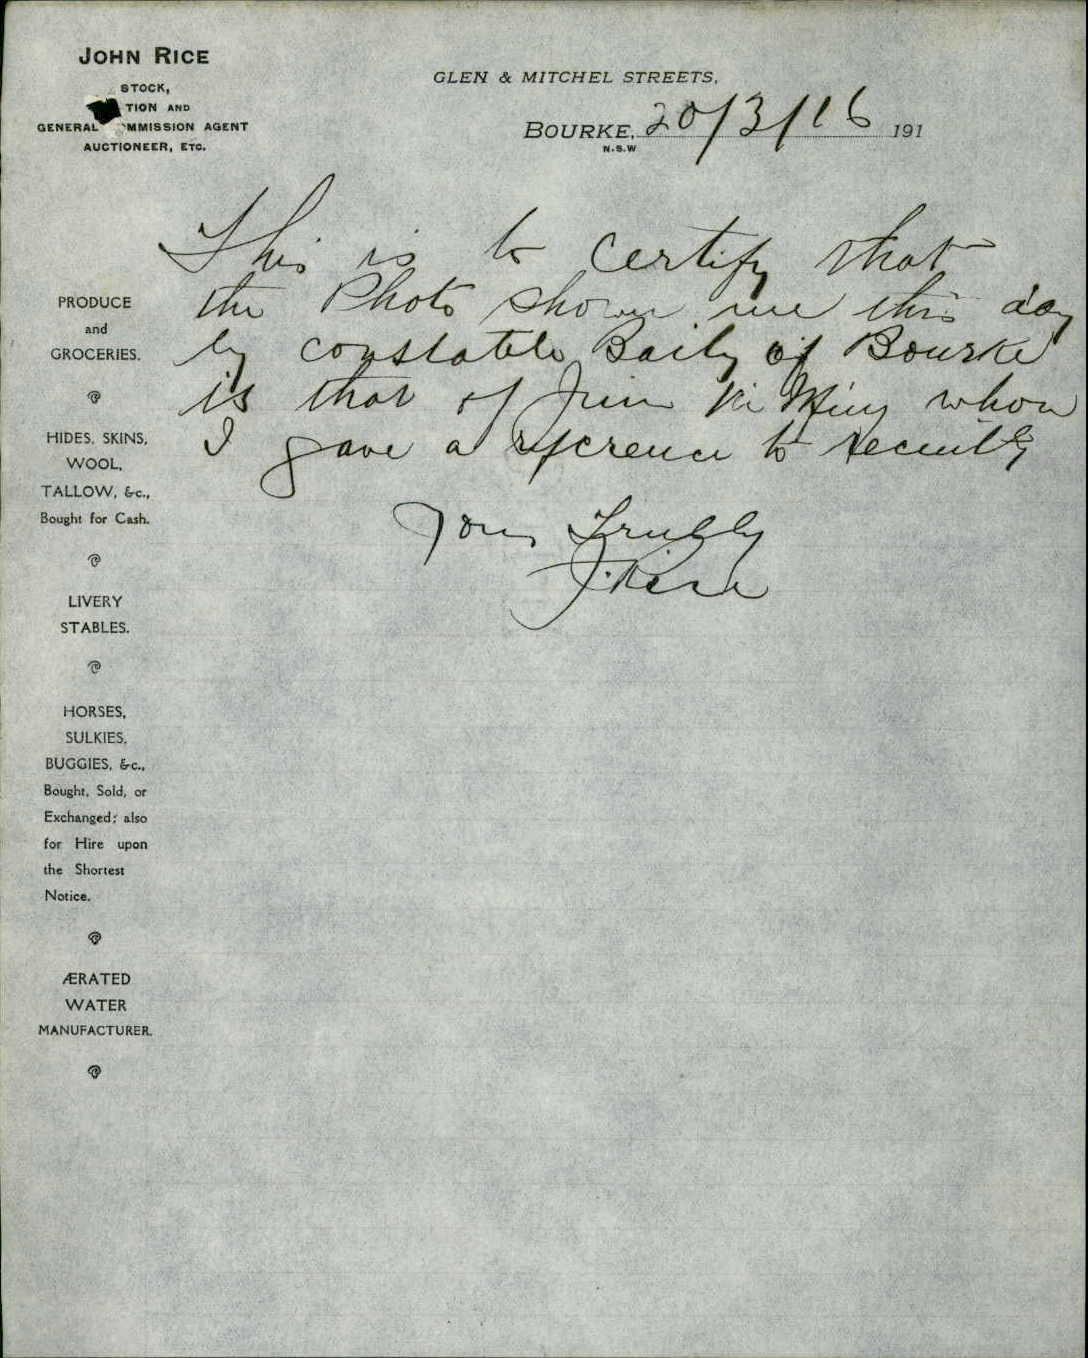 JOHN RICE
STOCK,
TION AND
GENERAL MMISSION AGENT
AUCTIONEER, ETC.
GLEN & MITCHEL STREETS,
BOURKE, 20/3/16 191
N.S.W
PRODUCE
and
GROCERIES.
HIDES, SKINS,
WOOL,
TALLOW, &c.,
Bought for Cash.
LIVERY
STABLES.
HORSES,
SULKIES,
BUGGIES, &c.,
Bought, Sold, or
Exchanged; also
for Hire upon
the Shortest
Notice.
ÆRATED
WATER
MANUFACTURER.
This is to certify that
the Photo shown me this day
by constable Baily of Bourke
is that of Jim whom
I gave a reference to recently
Yours Trully
J. Rice